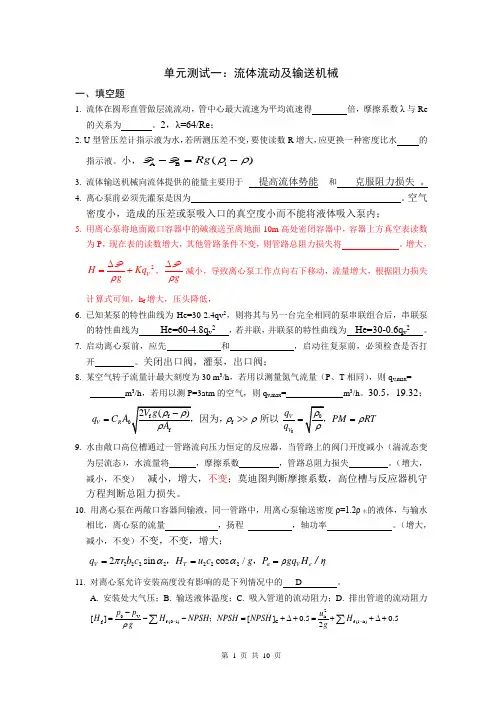 单元测试一：流体流动及输送机械
一、填空题
1. 流体在圆形直管做层流流动，管中心最大流速为平均流速得 倍，摩擦系数λ与 Re
的关系为 。2，λ=64/Re；
2. U 型管压差计指示液为水，若所测压差不变，要使读数 R 增大，应更换一种密度比水 的
指示液。小，𝒫A−𝒫B = Rg(ρi − ρ)
3. 流体输送机械向流体提供的能量主要用于 提高流体势能 和 克服阻力损失 。
4. 离心泵前必须先灌泵是因为 。空气
密度小，造成的压差或泵吸入口的真空度小而不能将液体吸入泵内；
5. 用离心泵将地面敞口容器中的碱液送至离地面 10m 高处密闭容器中，容器上方真空表读数
为 P。现在表的读数增大，其他管路条件不变，则管路总阻力损失将 。增大，
H = Δ𝒫/ρg + KqV²，Δ𝒫/ρg 减小，导致离心泵工作点向右下移动，流量增大，根据阻力损失
计算式可知，hf 增大，压头降低，
6. 已知某泵的特性曲线为 He=30-2.4qv²，则将其与另一台完全相同的泵串联组合后，串联泵
的特性曲线为 He=60-4.8qv² ，若并联，并联泵的特性曲线为 He=30-0.6qv² 。
7. 启动离心泵前，应先 和 ，启动往复泵前，必须检查是否打
开 。关闭出口阀，灌泵，出口阀；
8. 某空气转子流量计最大刻度为 30 m³/h，若用以测量氮气流量（P、T 相同），则 qv,max=
m³/h，若用以测 P=3atm 的空气，则 qv,max= m³/h。30.5，19.32；
qV = CRA0√(2Vfg(ρf−ρ)/ρAf)，因为，ρf >> ρ 所以 qV/qV0 = √(ρ0/ρ)，PM = ρRT
9. 水由敞口高位槽通过一管路流向压力恒定的反应器，当管路上的阀门开度减小（湍流态变
为层流态），水流量将 ，摩擦系数 ，管路总阻力损失 。（增大，
减小，不变） 减小，增大，不变；莫迪图判断摩擦系数，高位槽与反应器机守
方程判断总阻力损失。
10. 用离心泵在两敞口容器间输液，同一管路中，用离心泵输送密度 ρ=1.2ρ水的液体，与输水
相比，离心泵的流量 ，扬程 ，轴功率 。（增大，
减小，不变）不变，不变，增大；
qV = 2πr2b2c2 sin α2，HT = u2c2 cos α2 / g，Pa = ρgqVHe / η
11. 对离心泵允许安装高度没有影响的是下列情况中的 D 。
A. 安装处大气压；B. 输送液体温度；C. 吸入管道的流动阻力；D. 排出管道的流动阻力
第 1 页 共 10 页